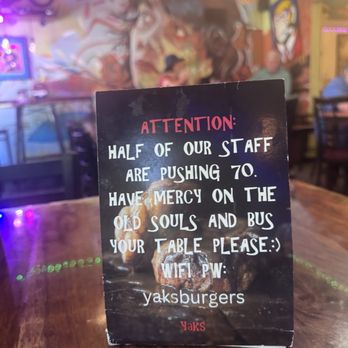 ATTENTION:
HALF OF OUR STAFF
ARE PUSHING 70.
HAVE MERCY ON THE
OLD SOULS AND BUS
YOUR TABLE PLEASE:)
WIFI PW:
yaksburgers
YaKS